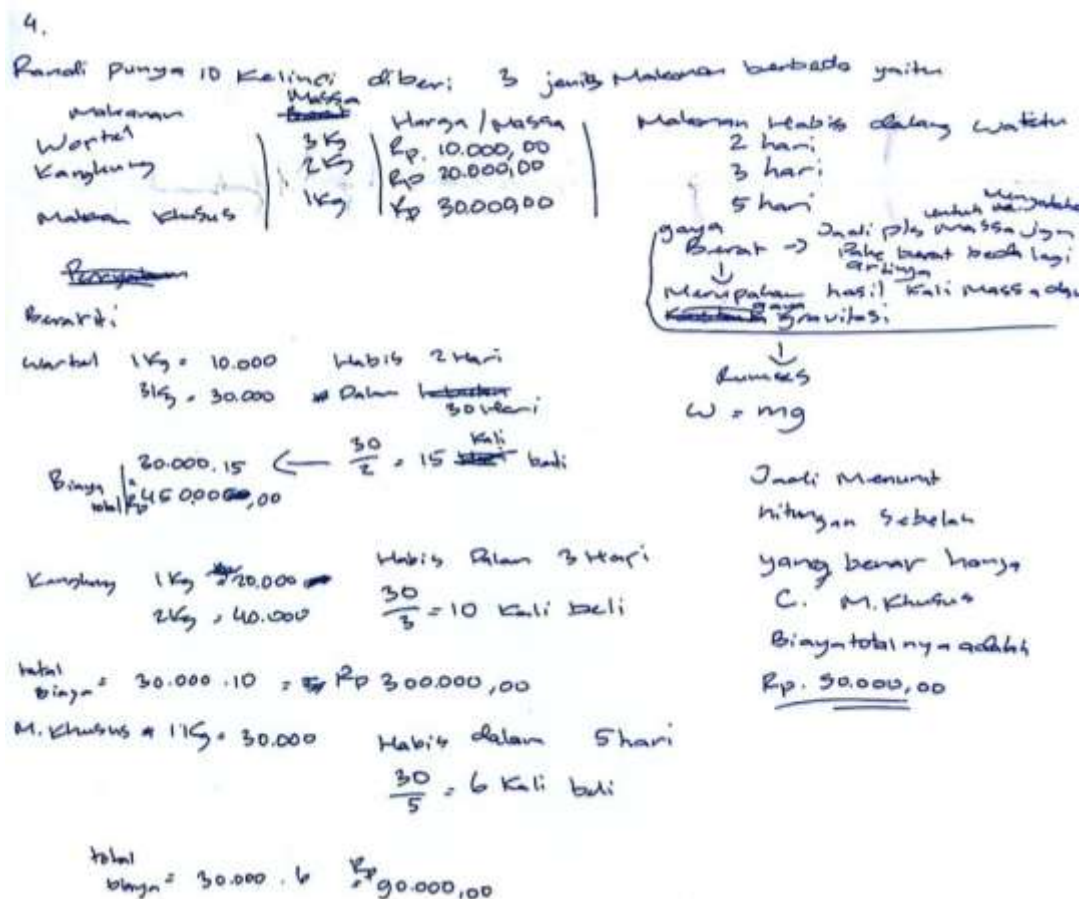 4.
Randi punya 10 Kelinci diberi 3 jenis Makanan berbeda yaitu
makanan Massa Harga / Massa Makanan Habis dalang waktu
Wortel 3 Kg Rp. 10.000,00 2 hari
Kangkung 2 Kg Rp 20.000,00 3 hari
Makanan Khusus 1 Kg Rp 30.000,00 5 hari
gaya
Berat → Jadi pls untuk massa jgn
Pake berat beda lagi
artinya
Merupakan hasil kali Massa dan
gaya gravitasi
Rumus
w = mg
Berarti
Wortel 1 Kg = 10.000 Habis 2 Hari
3 Kg = 30.000 Dalam 30 Hari
30.000 . 15 ← 30/2 = 15 Kali beli
Biaya total = Rp 450.000,00
Kangkung 1 Kg = 20.000 Habis Dalam 3 Hari
2 Kg = 40.000 30/3 = 10 Kali beli
total Biaya = 30.000 . 10 = Rp 300.000,00
M. Khusus = 1 Kg = 30.000 Habis dalam 5 hari
30/5 = 6 Kali beli
total biaya = 30.000 . 6 = Rp 90.000,00
Jadi Menurut
hitungan Sebelah
yang benar hanya
C. M. Khusus
Biaya totalnya adalah
Rp. 90.000,00